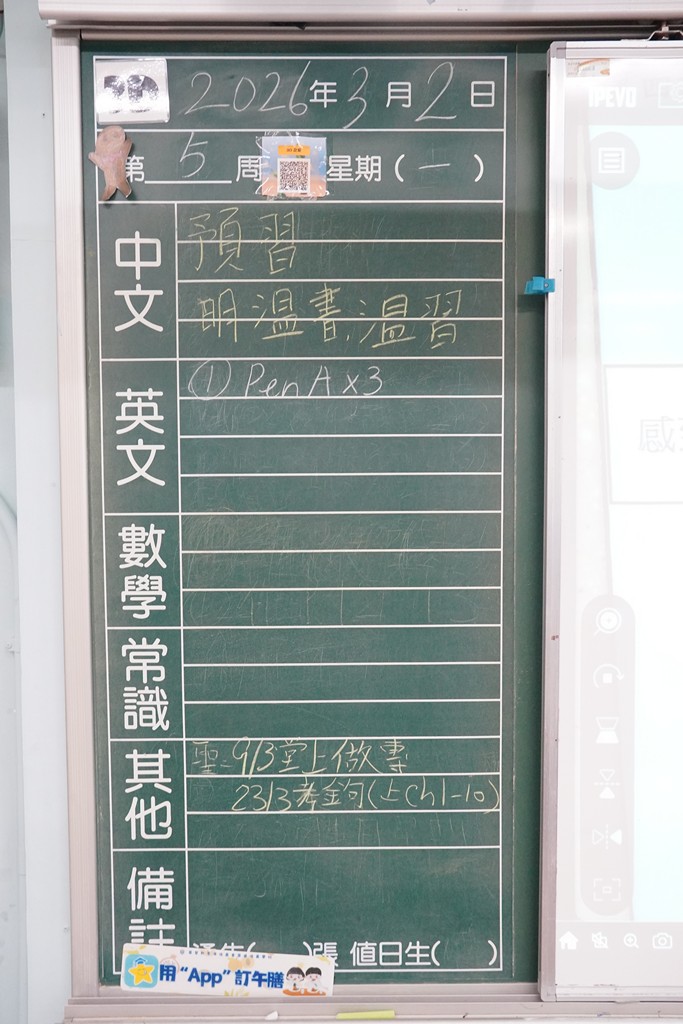 3D 2026年3月2日
第5周 星期(一)
中文
預習
明溫書,溫習
英文
① Pen A x3
數學
常識
其他
聖: 9/3堂上做專
23/3考金句(上Ch1-10)
備註
通告( )張 值日生( )
用“App”訂午膳
IPEVO
感